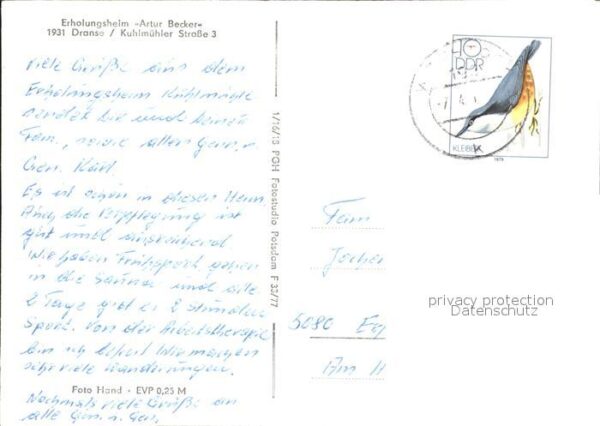 Erholungsheim »Artur Becker«
1931 Dranse / Kuhlmühler Straße 3
Viele Grüße aus dem
Erholungsheim Kuhlmühle
sendet Dir und Deiner
Fam., sowie allen Genn. u.
Gen. Karl.
Es ist schön in diesem Heim
Auch die Verpflegung ist
gut und ausreichend
Wir haben Frühsport gehen
in die Sauna und alle
2 Tage gibt es 2 Stunden
Sport. Von der Arbeitstherapie
bin ich befreit Wir machen
sehr viele Wanderungen.
Foto Hand • EVP 0,25 M
Nochmals viele Grüße an
alle Genn. u. Gen.
1/16/13 PGH Fotostudio Potsdam F 33/77
10
DDR
KLEIBER
1979
Fam
Jochen
privacy protection
Datenschutz
5080
Am H